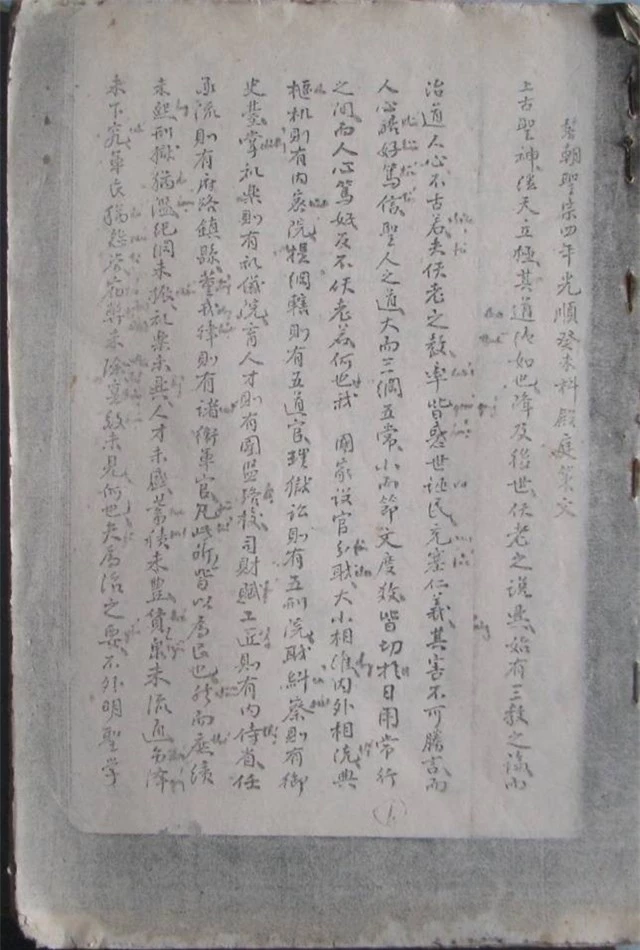 黎朝聖宗四年光順癸未科殿庭策文
上古聖神継天立極其道如也降及後世仸老之説興始有三教之議而
治道人心不古若夫仸老之教率皆惑世誣民充塞仁義其害不可勝言而
人心嗜好篤信聖人之道大而三綱五常小而節文度数皆切於日用常行
之間而人心篤好反不仸老若何也我 國家設官分職大小相維内外相統典
樞机則有内密院提綱轄則有五道官理獄訟則有五刑院職糾察則有御
史臺掌礼樂則有礼儀院育人才則有國監路校司財賦工匠則有内侍省任
承流則有府路鎮縣董戎律則有諸衛軍官凡此所皆以為民也然而庶績
未熙刑獄猶濫紀綱未振礼樂未興人才未盛蓄積未豊貨泉未流通
未下究軍民猶冤弊未除未見何也夫為治之要不外明聖學